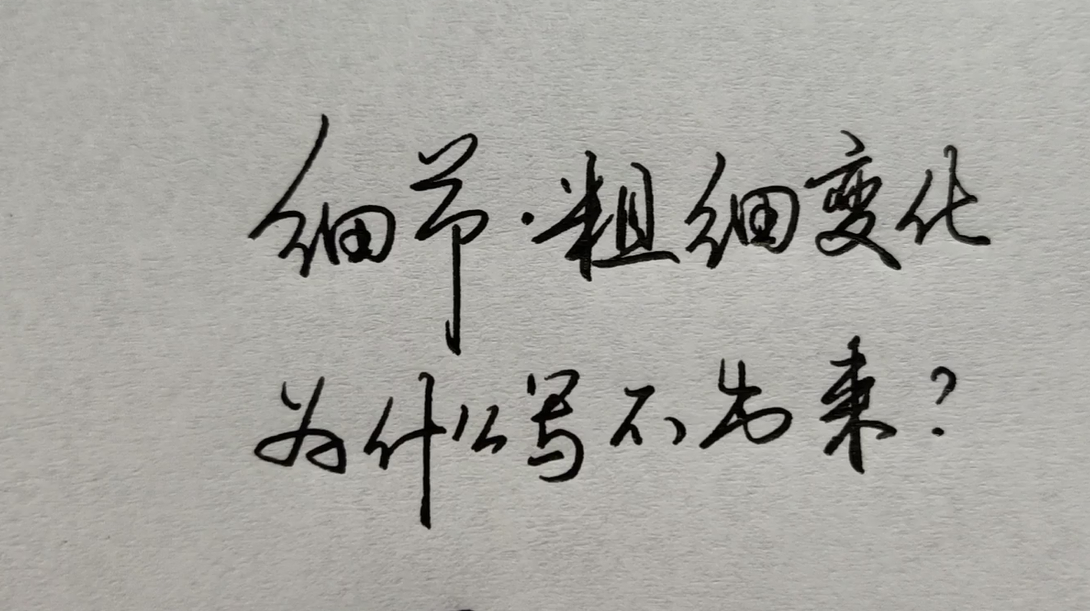 细节·粗细变化
为什么写不出来?